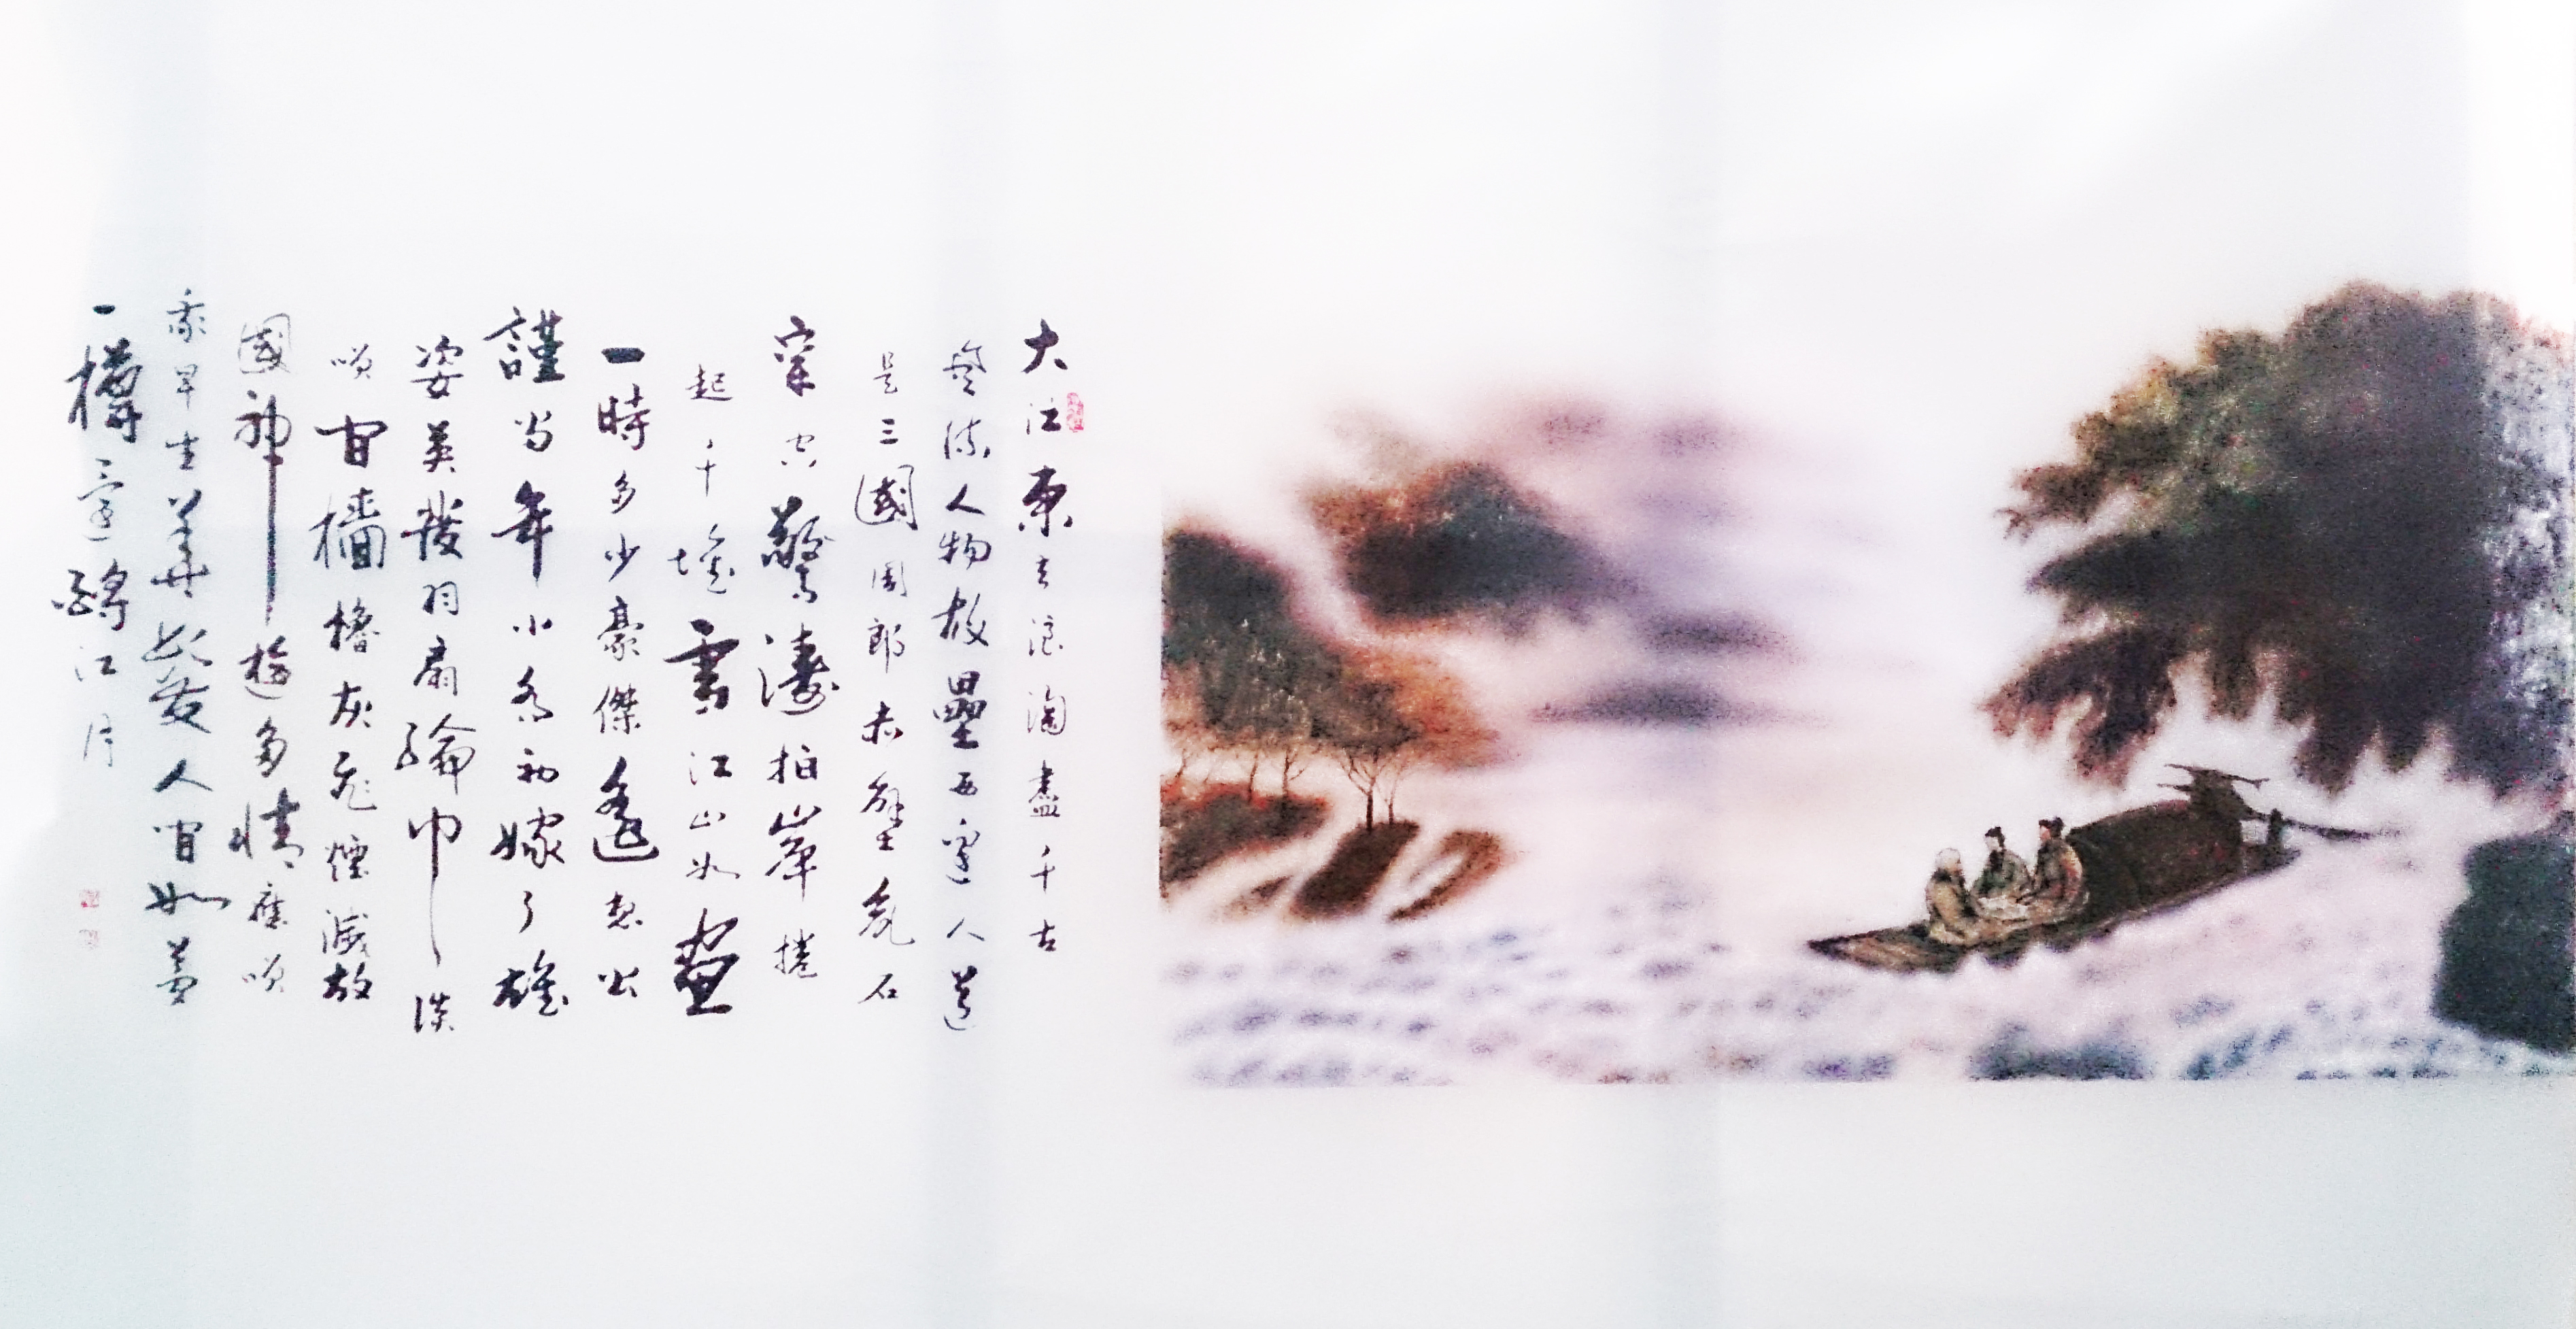 大江東去浪淘盡千古
風流人物故壘西邊人道
是三國周郎赤壁亂石
穿空驚濤拍岸捲
起千堆雪江山如畫
一時多少豪傑遙想公
謹當年小喬初嫁了雄
姿英發羽扇綸巾談
笑間檣櫓灰飛煙滅故
國神遊多情應笑
我早生華髮人間如夢
一樽還酹江月